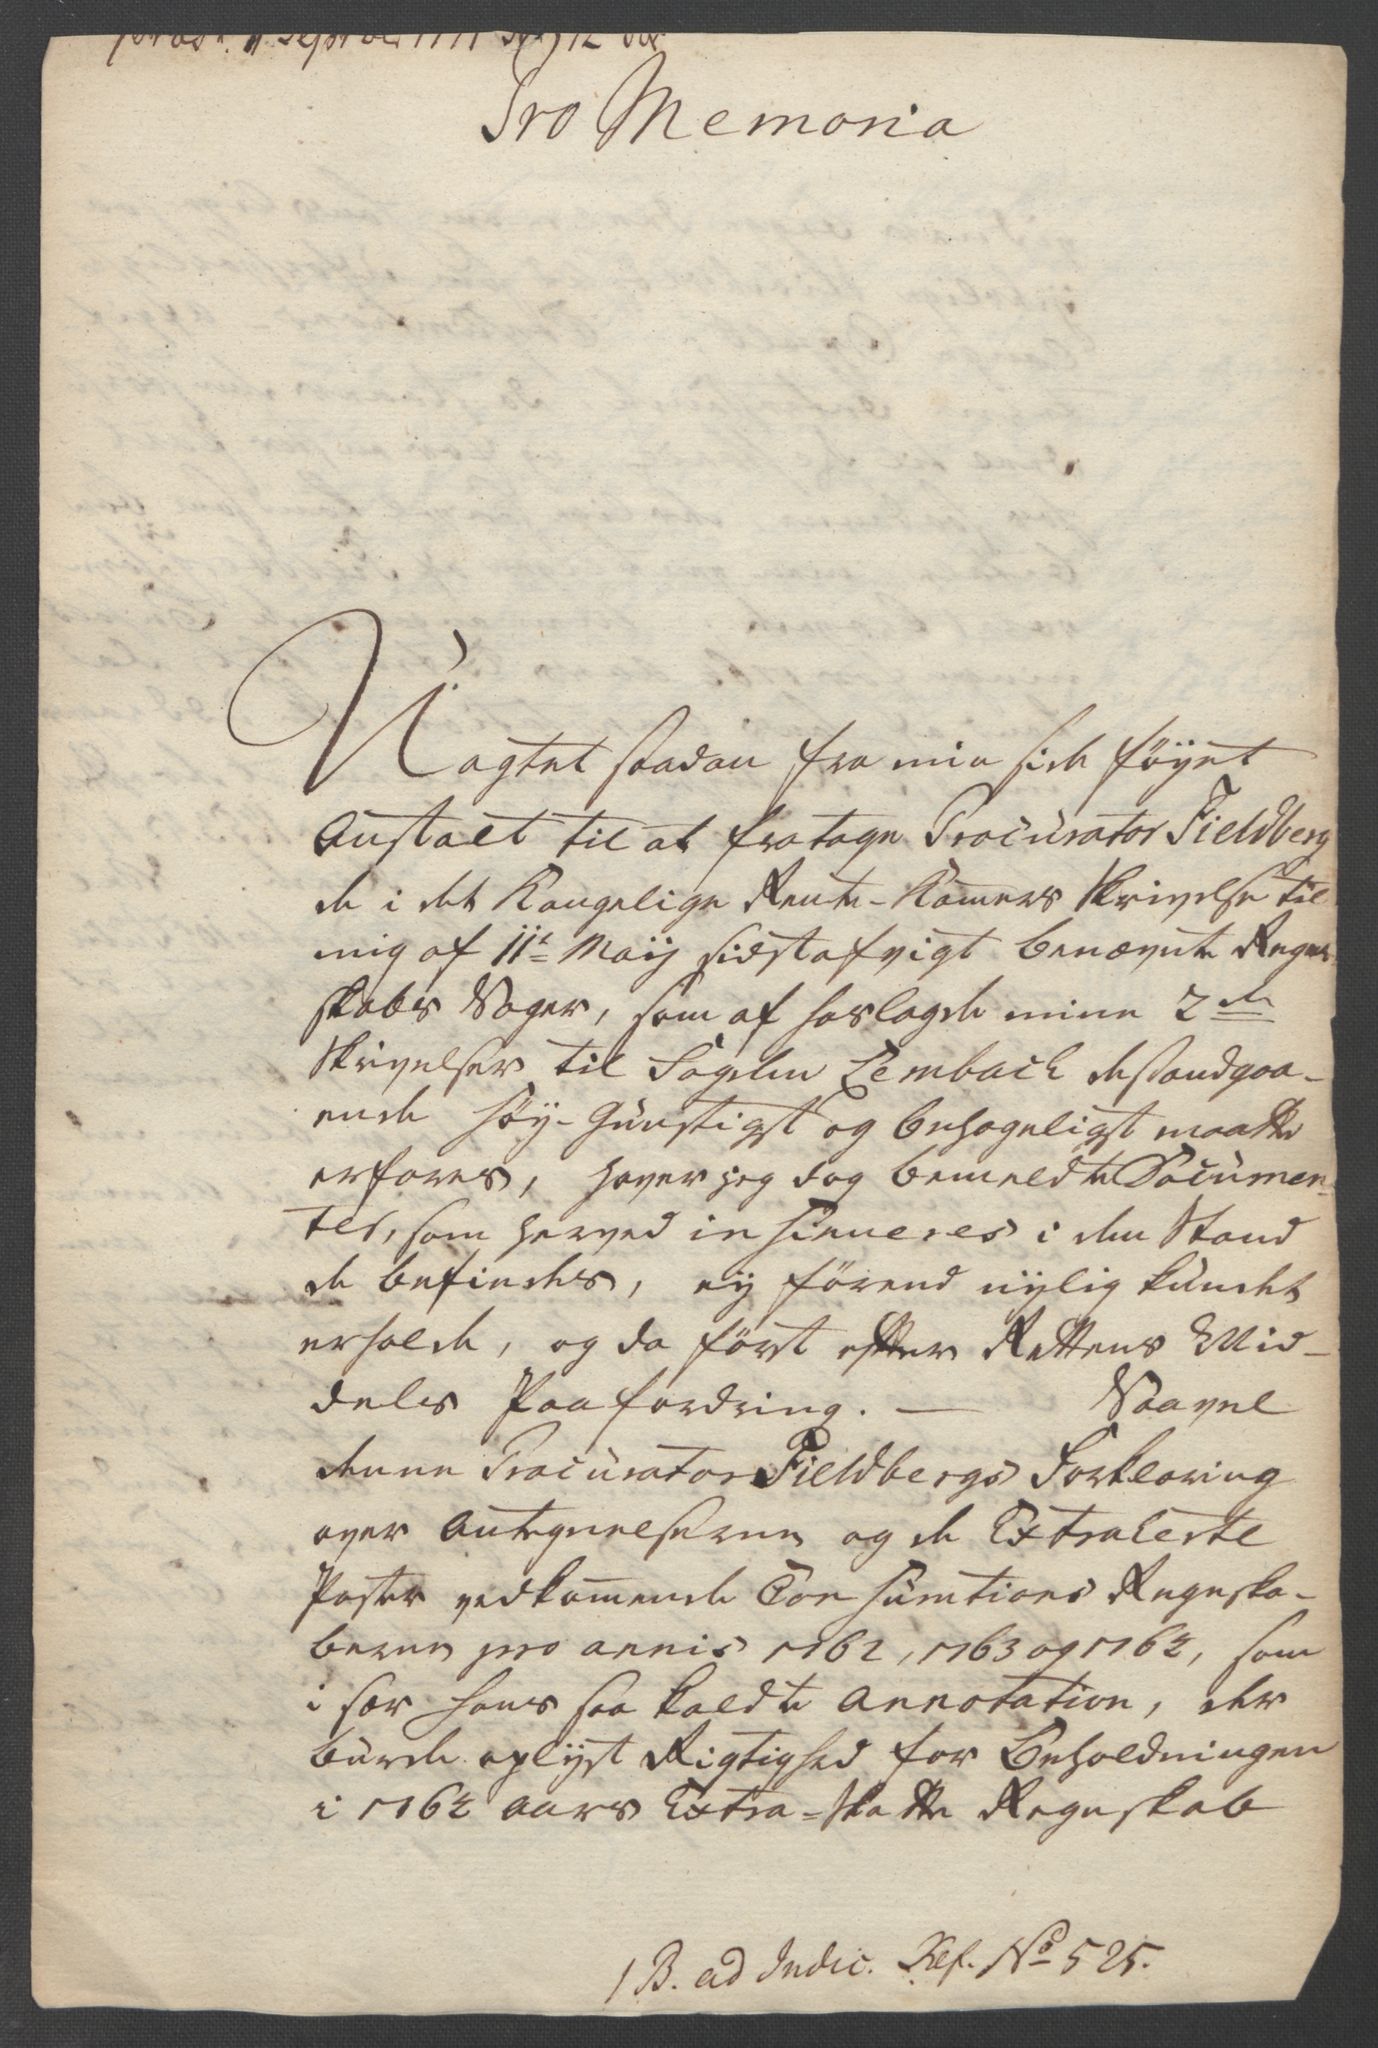 Pro Memoria
Uagtet saadan fra min side föyet
Anstalt til at fratage Procurator Fieldberg
de i det Kongelige Rente-Kamers Skrivelse til
mig af 11te Maij sidstafvigt benævnte Regn-
skabs Sager, som af hoslagde mine 2de
Skrivelser til Fogden Lembach desaudgaa-
ende höy-Gunstigst og behageligst maatte
erfares, haver jeg dog bemeldte Documen-
ter, som herved insinueres i den Stand
de befindes, ey förend nylig kundet
erholde, og da först efter Rettens Mid-
dels Paafordring. — Saavel
denne Procurator Fieldbergs Forklaring
over Antegnelserne og de Extraherte
Poster vedkommende Consumtions Regnska-
berne pro annis 1762, 1763 og 1764, som
i sær hans saa kaldte Annotation, der
burde oplyst Rigtighed for Beholdningen
i 1764 Aars Extra-Skatte Regnskab
1 B. ad Indic. Ref. No 525.